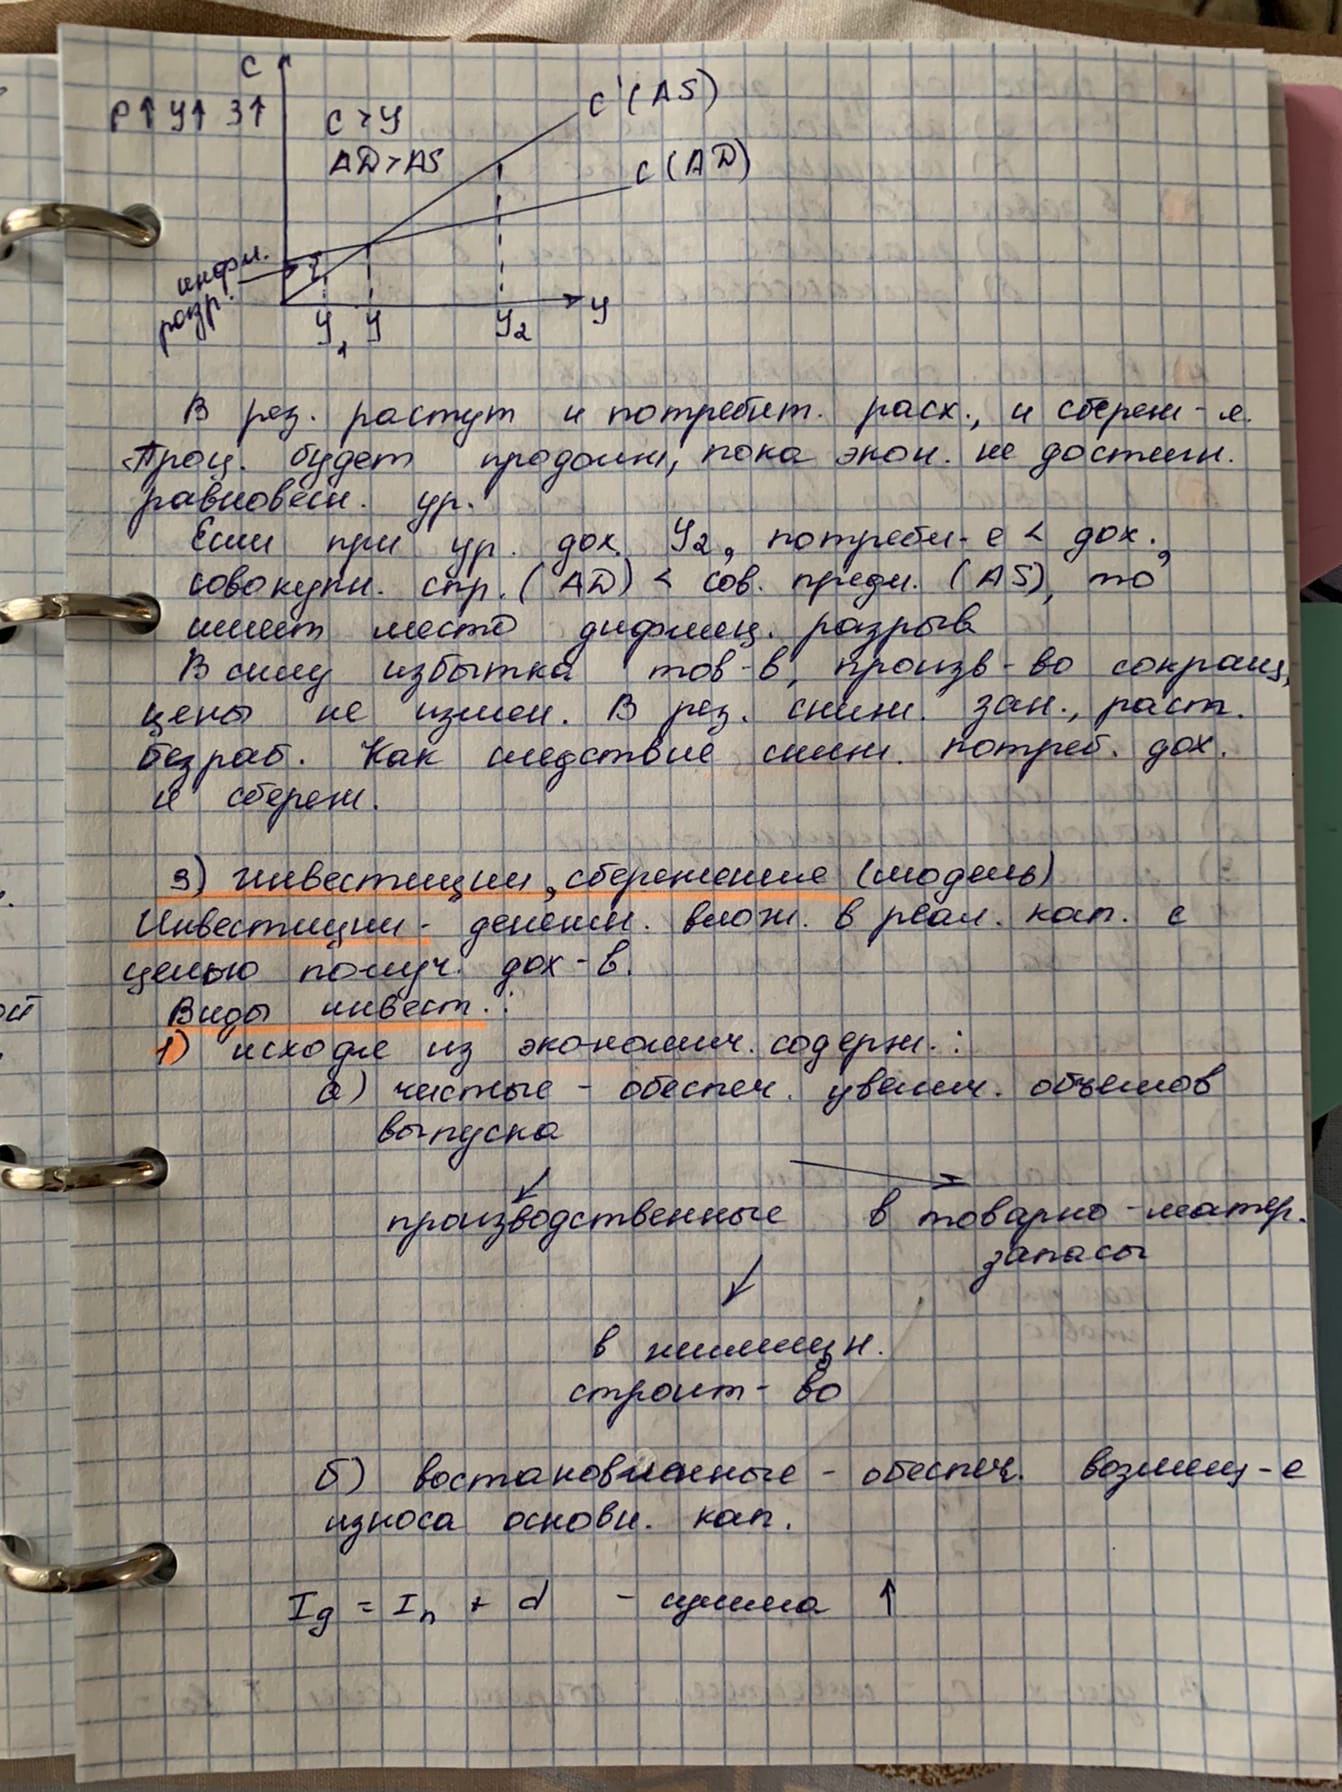 C
P↑ У↑ З↑
C > У
AD > AS
C'(AS)
C (AD)
инфл.
разр.
У1 У У2 У
В рез. растут и потребит. расх., и сбереж-я.
Проц. будет продолж, пока экон. не достигн.
равновесн. ур.
Если при ур. дох. У2, потребл-е < дох.,
совокупн. спр. (AD) < сов. предл. (AS), то
имеет место дифляц. разрыв
В силу избытка тов-в, произв-во сокращ,
цены не измен. В рез. сниж. зан., раст.
безраб. Как следствие сниж. потреб. дох.
и сбереж.
3) Инвестиции, сбережение (модель)
Инвестиции - денежн. влож. в реал. кап. с
целью получ. дох-в.
Виды инвест.:
1) исходя из экономич. содерж.:
а) чистые - обеспеч. увелич. объемов
выпуска
производственные в товарно-матер.
запасы
в жилищн.
строит-во
б) востановленные - обеспеч. возмещ-е
износа основн. кап.
Ig = In + d - сумма ↑